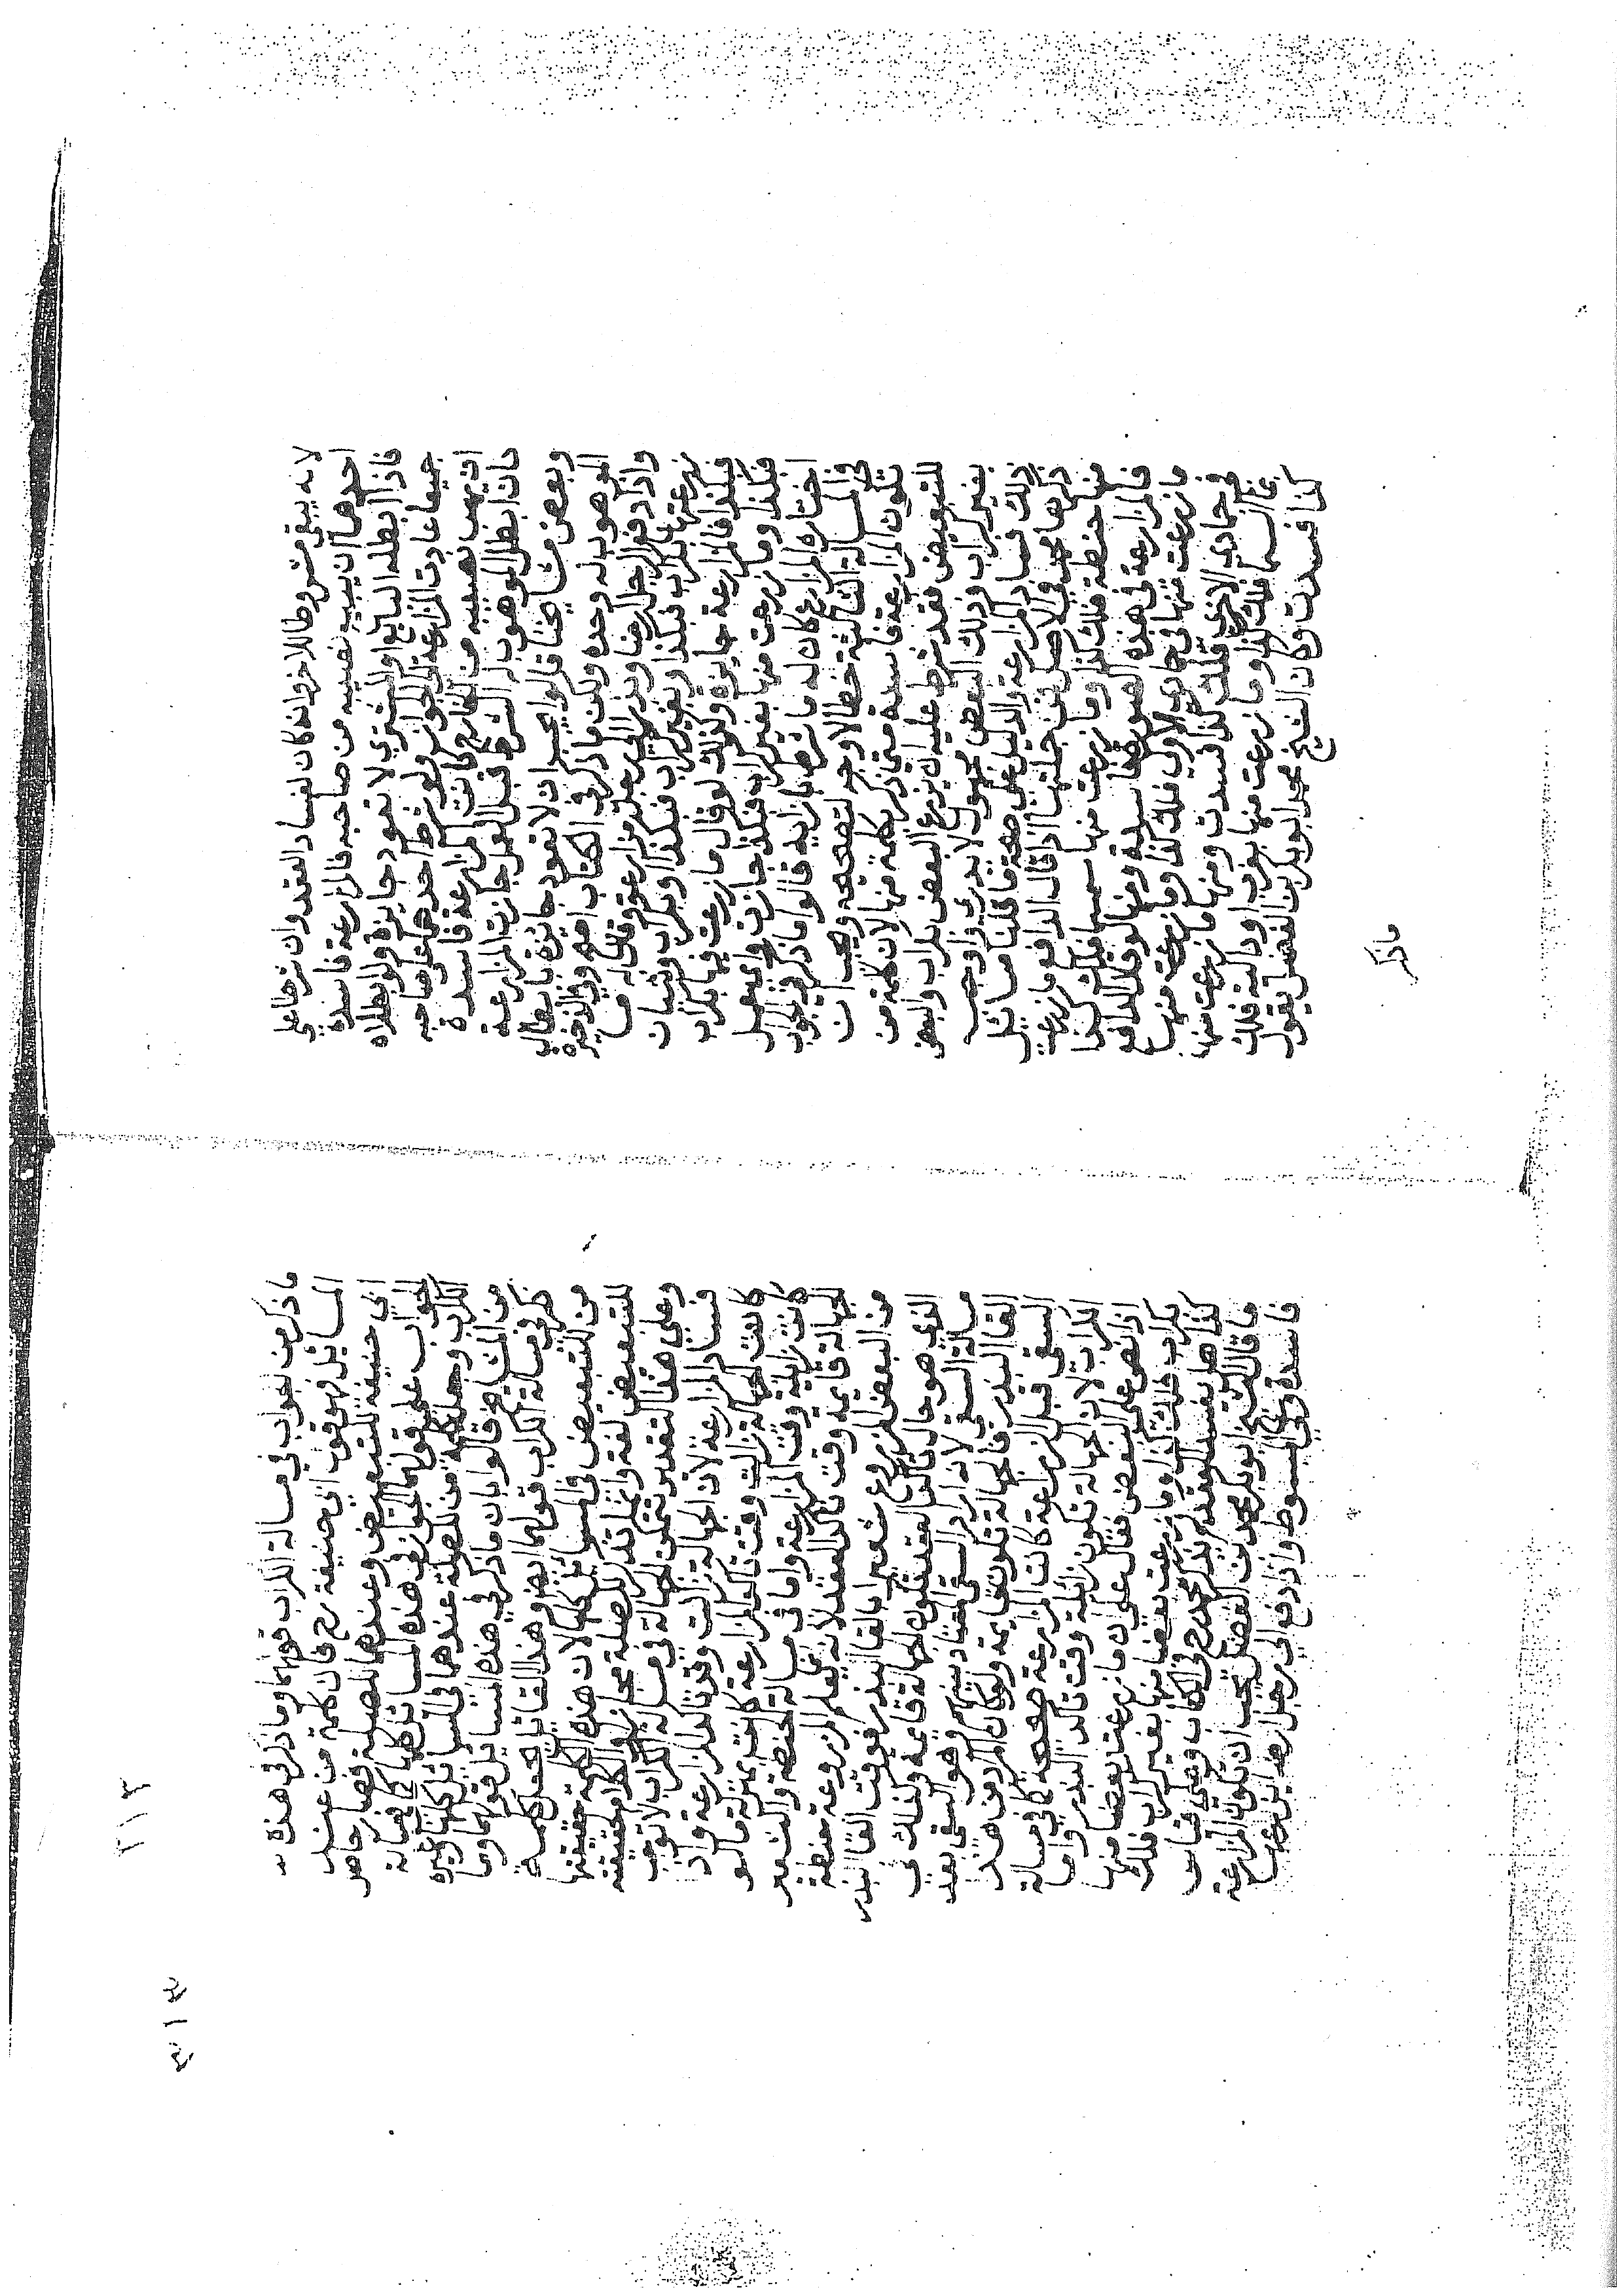 لانه يبقى مشروطا للاخر فانه كان لفساد العقد وان شرطا على
احدهما ان يبيع نصيبه من صاحبه فالمزارعة فاسدة
فاذا ابطله البائع او المشتري لا تعود جايزة ولو ابطلاه
جميعا عادت المزارعة الى الجواز ولو شرط احدهما على صاحبه
ان يهب نصيبه من الخارج كانت المزارعة فاسدة
فان ابطل الموهوب له الشرط قبل العمل جازت المزارعة
وبعض مشايخنا قالوا يجب ان لا تعود جائزة بابطال
الموهوب له وحده ولكن ما ذكر في الكتاب اصح وفي الذخيرة
واذا دفع الرجل ارضا وبذرا الى رجل مزارعة وقال له ما
زرعتها بكراب فبكذا وبغير كراب فبكذا وبكراب وثنيان
فبكذا فالمزارعة جايزة وكذلك لو قال ما زرعت فيها بكراب
فبكذا وما زرعت منها بغير كراب فبكذا جازت
اختاره المزارع كان له ما شرط بازايه قالوا ما ذكر من الجواب
في المسالة الثالثة خطا لا وجه لتصحيحه ويجب ان
تكون المزارعة فاسدة متى ذكر كلمة منها لان كلمة من
للتبعيض فقد شرط عليه ان يزرع البعض بكراب والبعض
بغير كراب وذلك البعض مجهول لا يدرى فاوجب
ذلك فساد المزارعة والدليل على صحة ما قلنا مسائل
ذكرها محمد في الاصل من جملتها اذا قال الدافع ما زرعت
منها حنطة فلك كذا وما زرعت منها سمسما فلك كذا
فالمزارعة في هذه الصور فاسدة ومنها لو قال الدافع
ما زرعت منها في جمادى الاولى فلك كذا وما زرعت منها
في جمادى الاخرى فلك كذا فسدت ومنها ما زرعت منها
بماء السماء فلك كذا وما زرعت منها بغرب او دالية فلك
كذا فسدت وكان الشيخ محمد ابو بكر بن الفضل يقول
ما ذكر
٢١٣
٣١٣
ما ذكر من الجواب في مسالة الكراب قولهما وما ذكر في هذه
المسائل فهو قول ابي حنيفة رح فان كلمة من عند
ابي حنيفة للتبعيض وعندهما للصلة فصار حاصل
الجواب على قولهما الجواز في هذه المسائل كلها كما في مسالة
الكراب وجعل كلمة من للصلة عندهما في المسائل كلها وغيره
من المشايخ قالوا بان ما ذكر في هذه المسائل قولهما وما
ذكر في مسالة الكراب قولهما ايضا وهذا القائل يجعل كلمة
من للتبعيض في المسائل كلها لان هذه الكلمة حقيقتها
للتبعيض لغة وانما تذكر للصلة مجازا والكلام لحقيقته
وعلى هذا التقدير تتمكن الجهالة في مسالة الكراب الا انها لا توجب
فساد المزارعة لان الجهالة زالت وقت تاكد المزارعة واذ
كانت الجهالة زالت وقت تاكد المزارعة كانت بمنزلة ما لو
كانت زائلة وقت المزارعة واما في مسالة الحنطة والشعير
الجهالة قايمة وقت تاكد العقد لانه انما يعلم المزروعة حنطة
من البعض المزروع شعيرا بالقاء البذر فوقت القاء البذر
الذي هو حال تاكد العقد تكون الجهالة قايمة وكذلك في
مسالة السقي لانه اراد السقي المعتاد بينهم وهو السقي بعد
القاء البذر فالجهالة تكون قايمة ولو كان المراد من هذا
السقي قبل الزراعة كانت المزارعة صحيحة كما في مسالة
الكراب لان الجهالة تكون زائلة وقت تاكد البذر واما
اذا نص على البعض فقال على ان ما زرعت بعضا منها
بكراب فلك كذا وما زرعت بعضا منها بغير كراب فلك
كذا هل يفسد العقد لم يذكر محمد رح في الكتاب وعلى قياس
ما قال الشيخ ابو بكر محمد بن الفضل يجب ان تكون المزارعة
فاسدة وفي المبسوط واذا دفع الى رجل ارضا يزرعها